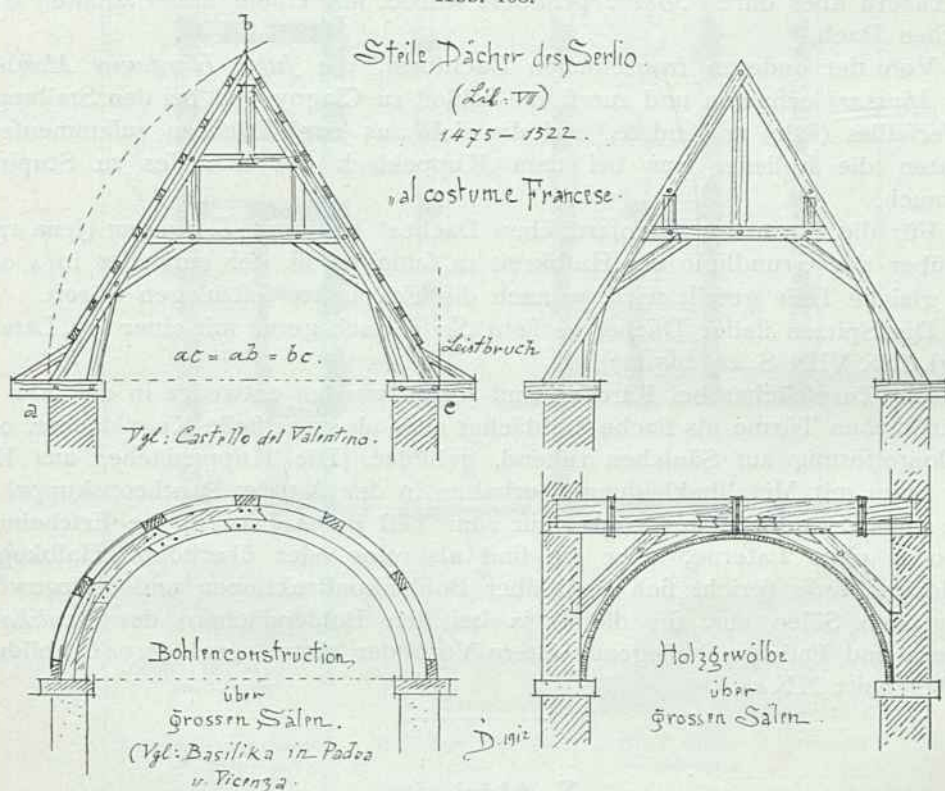 b
Steile Dächer des Serlio
(Lib: VII)
1475 – 1522.
„al costume Francese
ac = ab = bc.
Leistbruch
a
c
Vgl: Castello del Valentino.
Bohlenconstruction,
über
grossen Sälen.
(Vgl: Basilika in Padoa
u. Vicenza.
Holzgewölbe
über
grossen Sälen.
D. 1912